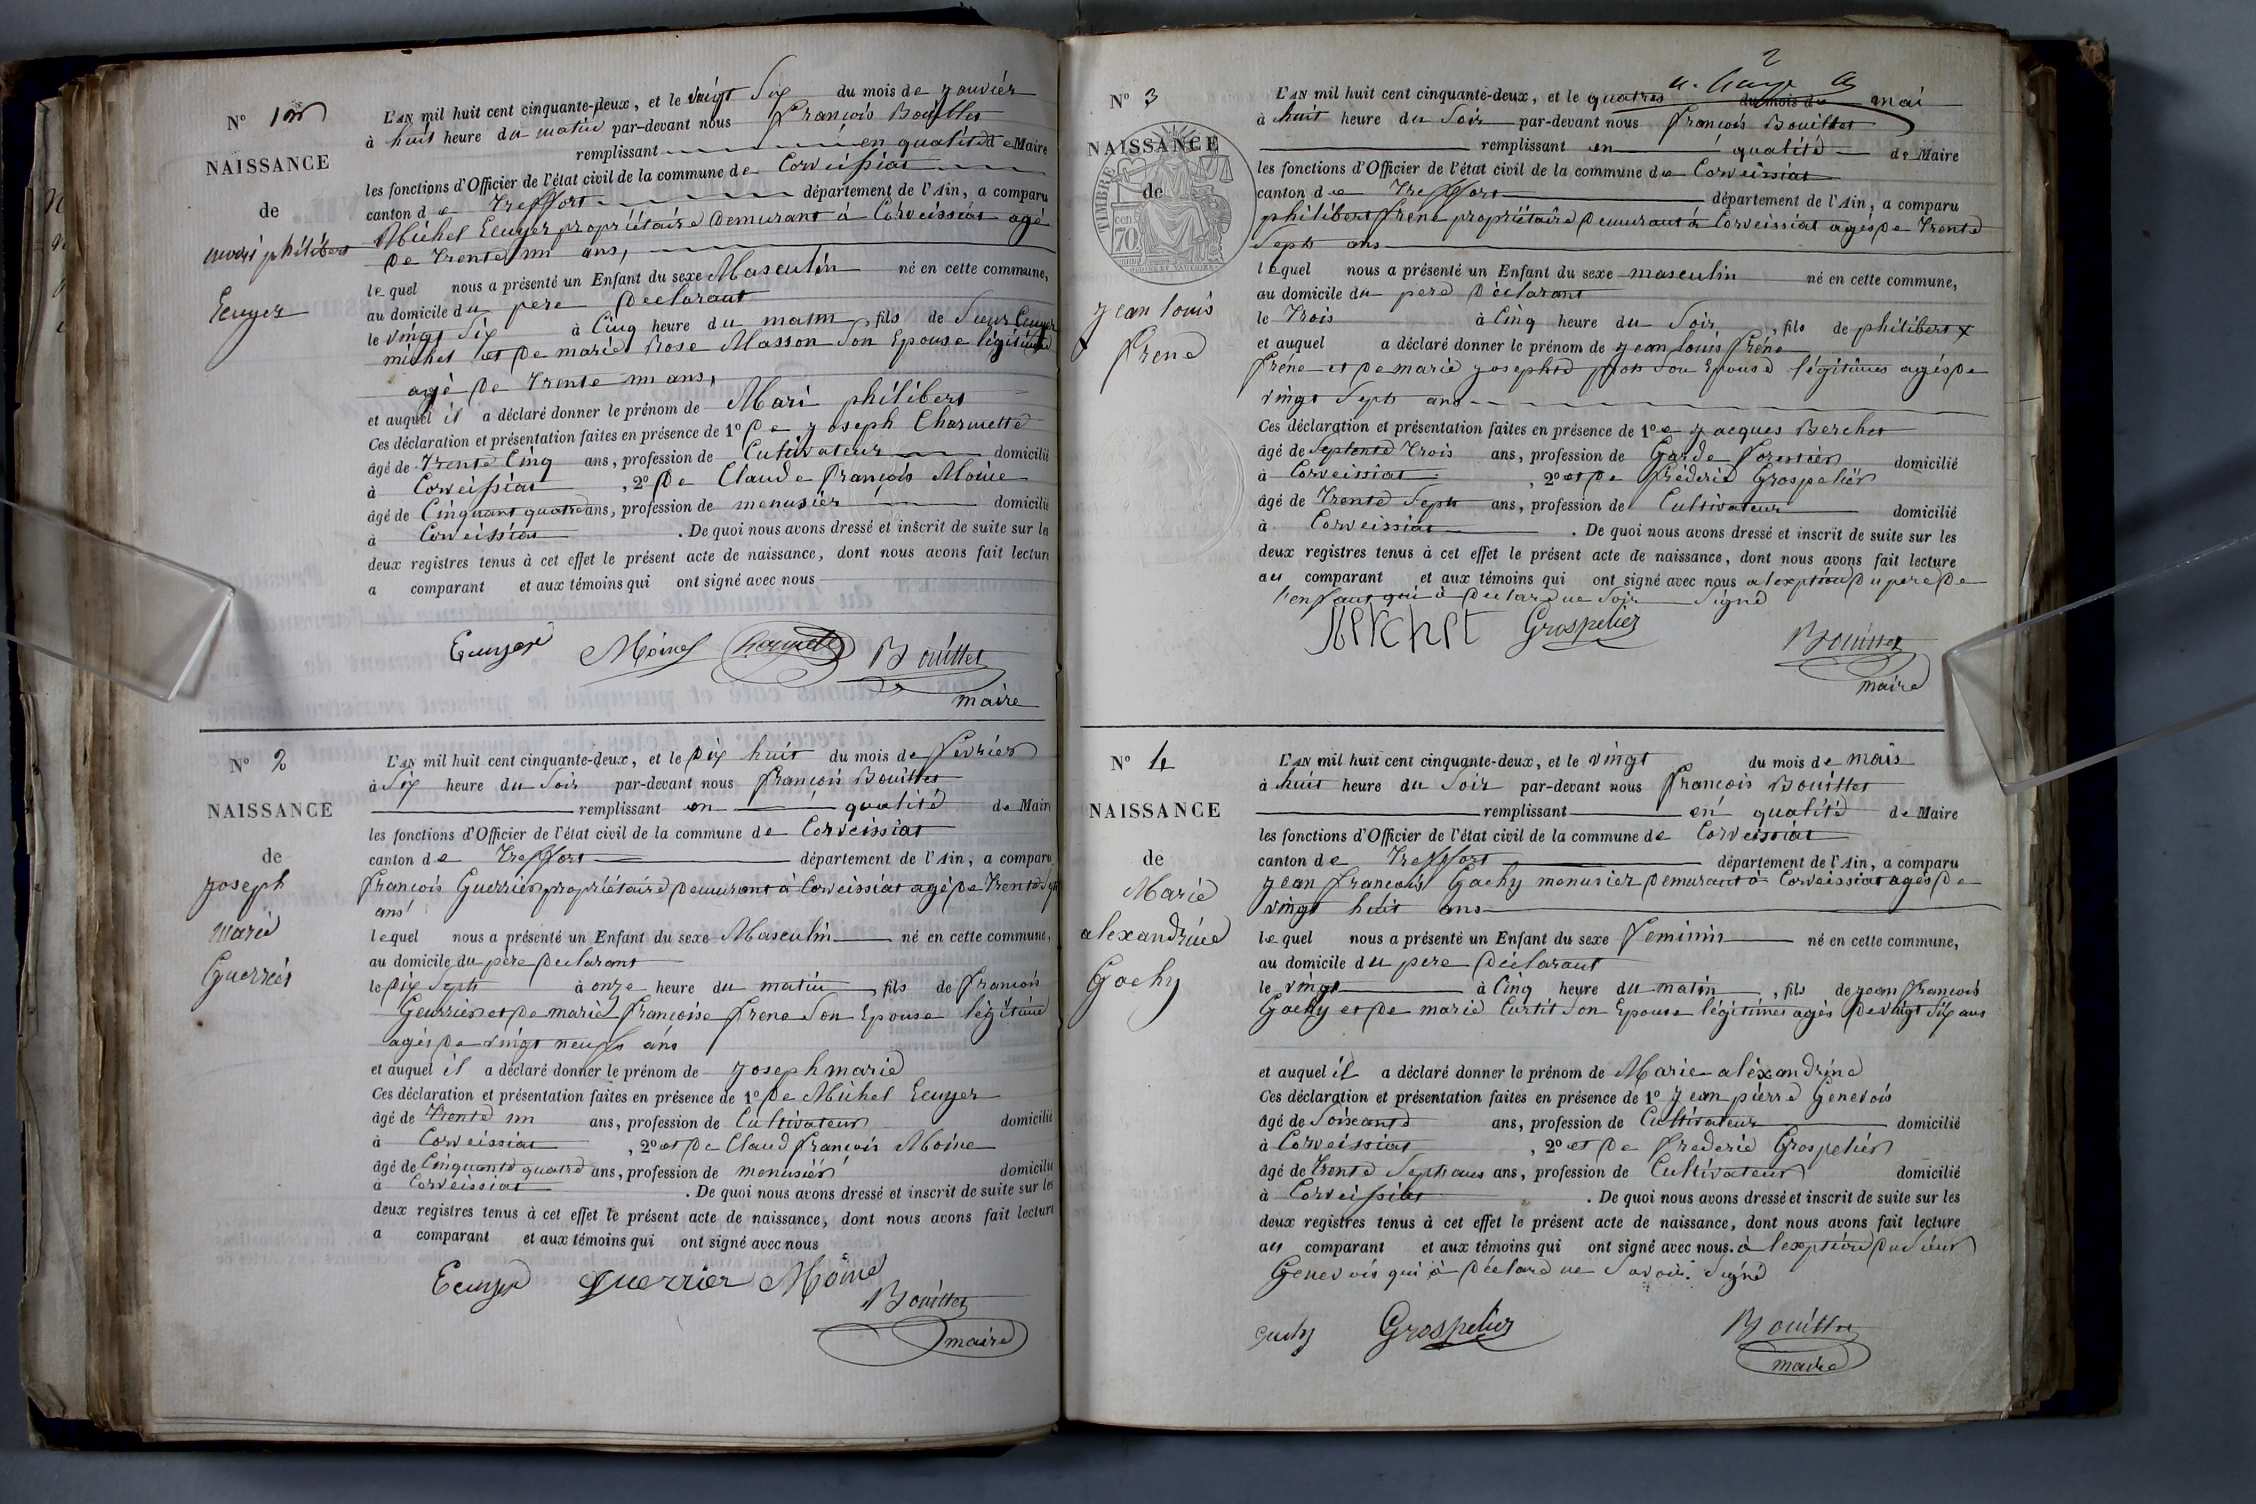 N° 1er
NAISSANCE
de
mari philibert
Ecuyer
L'AN mil huit cent cinquante-deux, et le vingt Six du mois de janvier
à huit heure du matin par-devant nous François Bouillet
remplissant en qualité de Maire
les fonctions d'Officier de l'état civil de la commune de Corveissiat
canton de Treffort département de l'Ain, a comparu
Michel Ecuyer propriétaire demurant à Corveissiat agé
de trente un ans,
lequel nous a présenté un Enfant du sexe Masculin né en cette commune,
au domicile du pere declarant
le vingt Six à Cinq heure du matin, fils de Sieur Ecuyer
michel et de marie Rose Masson Son Epouse légitime
agé de trente un ans,
et auquel il a déclaré donner le prénom de Mari philibert
Ces déclaration et présentation faites en présence de 1° de joseph Charnette
âgé de Trente Cinq ans, profession de Cutivateur domicilié
à Corveissiat, 2° de Claude François Moine
âgé de Cinquant quatre ans, profession de menusier domicilié
à Corveissiat. De quoi nous avons dressé et inscrit de suite sur les
deux registres tenus à cet effet le présent acte de naissance, dont nous avons fait lecture
a comparant et aux témoins qui ont signé avec nous
Ecuyer Moine Charnette Bouillet
maire
N° 2
NAISSANCE
de
joseph
marie
Guerrier
L'AN mil huit cent cinquante-deux, et le dix huit du mois de fevrier
à Six heure du Soir par-devant nous françois Bouillet
remplissant en qualité de Maire
les fonctions d'Officier de l'état civil de la commune de Corveissiat
canton de Treffort département de l'Ain, a comparu
françois Guerrier propriétaire demurant à Corveissiat agé de trente Sept
ans
lequel nous a présenté un Enfant du sexe Masculin né en cette commune,
au domicile du père declarant
le dix Sept à onze heure du matin, fils de françois
Geurrier et de marie françoise frene Son Epouse légitime
agés de vingt neufs ans
et auquel il a déclaré donner le prénom de joseph marie
Ces déclaration et présentation faites en présence de 1° de Michel Ecuyer
âgé de Trente un ans, profession de Cultivateur domicilié
à Corveissiat, 2° et de Claud françois Moine
âgé de Cinquante quatre ans, profession de menusier domicilié
à Corveissiat. De quoi nous avons dressé et inscrit de suite sur les
deux registres tenus à cet effet le présent acte de naissance, dont nous avons fait lecture
a comparant et aux témoins qui ont signé avec nous
Ecuyer guerrier Moine
Bouillet
maire
2
N° 3
NAISSANCE
de
TIMBRE
cen 70
jean louis
frene
L'AN mil huit cent cinquante-deux, et le quatres du mois de mai
à huit heure du Soir par-devant nous françois Bouillet
remplissant en qualité de Maire
les fonctions d'Officier de l'état civil de la commune de Corveissiat
canton de Treffort département de l'Ain, a comparu
philibert frene propriétaire demurant à Corveissiat agés de trente
Sept ans
lequel nous a présenté un Enfant du sexe masculin né en cette commune,
au domicile du pere declarant
le Trois à Cinq heure du Soir, fils de philibert x
et auquel a déclaré donner le prénom de jean louis fréne
fréne et de marie josephte Son Epouse légitimes agés de
vingt Sept ans
Ces déclaration et présentation faites en présence de 1° e jacques Berchet
âgé de Septente Trois ans, profession de Garde forestier domicilié
à Corveissiat, 2° et de fréderic Grospelier
âgé de Trente Sept ans, profession de Cultivateur domicilié
à Corveissiat. De quoi nous avons dressé et inscrit de suite sur les
deux registres tenus à cet effet le présent acte de naissance, dont nous avons fait lecture
au comparant et aux témoins qui ont signé avec nous a lexption du pere de
l'enfant qui à declard ne Soir Signé
Berchet Grospelier
Bouillet
maire
N° 4
NAISSANCE
de
Marie
alexandrine
Gachy
L'AN mil huit cent cinquante-deux, et le vingt du mois de mais
à huit heure du Soir par-devant nous françois Bouillet
remplissant en qualité de Maire
les fonctions d'Officier de l'état civil de la commune de Corveissiat
canton de Treffort département de l'Ain, a comparu
jean françois Gachy menusier demurant à Corveissiat agés de
vingt huit ans
lequel nous a présenté un Enfant du sexe feminin né en cette commune,
au domicile du pere declarant
le vingt à Cinq heure du matin, fils de jean françois
Gachy et de marie Curtit Son Epouse légitimes agés de vingt Six ans
et auquel il a déclaré donner le prénom de Marie alexandrine
Ces déclaration et présentation faites en présence de 1° jean pierre Genevois
âgé de Soixante ans, profession de Cultivateur domicilié
à Corveissiat, 2° et de frederic Grospelier
âgé de Trente Sept ans ans, profession de Cultivateur domicilié
à Corveissiat. De quoi nous avons dressé et inscrit de suite sur les
deux registres tenus à cet effet le présent acte de naissance, dont nous avons fait lecture
au comparant et aux témoins qui ont signé avec nous. à lexption du Sieur
Genevois qui à déclard ne Savoir. Signé
gachy Grospelier Bouillet
maire